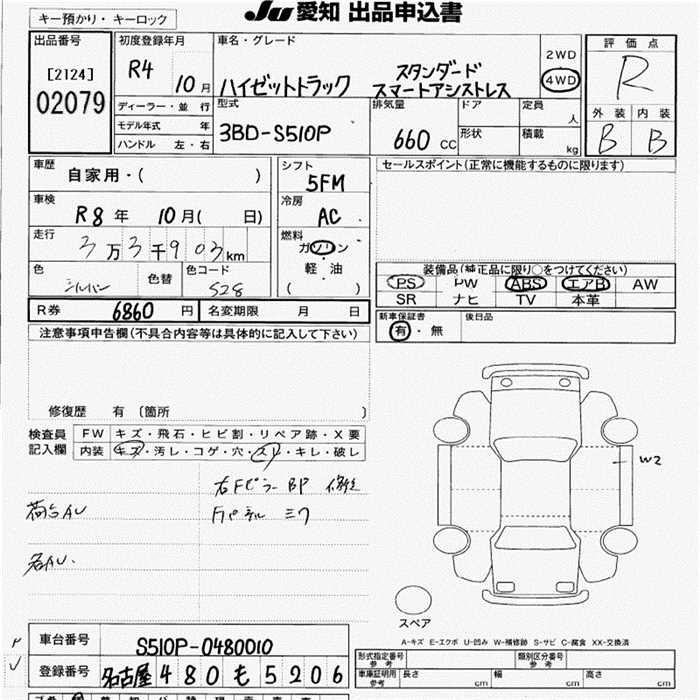 Ju 愛知 出品申込書
キー預かり・キーロック
出品番号
[2124]
02079
初度登録年月
R4 10月
ディーラー・並行
モデル年式 年
ハンドル 左・右
車名・グレード
ハイゼットトラック スタンダード
スマートアシストレス
2WD
4WD
評価点
R
外装 内装
B B
型式
3BD-S510P
排気量
660 CC
ドア
形状
定員
人
積載
kg
車歴
自家用・( )
車検
R8年 10月( 日)
走行
3万3千903km
色
シルバー
色替
色コード
S28
シフト
5FM
冷房
AC
燃料
ガソリン
軽・油
( )
セールスポイント(正常に機能するものに限ります)
装備品(純正品に限り○をつけてください)
PS PW ABS エアB AW
SR ナビ TV 本革
R券 6860 円
名変期限 月 日
新車保証書
有・無
後日品
注意事項申告欄(不具合内容等は具体的に記入して下さい)
修復歴 有 〔箇所 〕
検査員
記入欄
FW キズ・飛石・ヒビ割・リペア跡・X要
内装 キズ・汚レ・コゲ・穴・スレ・キレ・破レ
右Fピラー BP 修正
荷台AU
Fパネル ミワ
各AU.
W2
スペア
A-キズ E-エクボ U-凹み W-補修跡 S-サビ C-腐食 XX-交換済
車台番号
S510P-0480010
登録番号
名古屋 480 も 5206
型式指定番号
参考
類別区分番号
参考
車庫証明用
参考
長さ cm 幅 cm 高さ cm